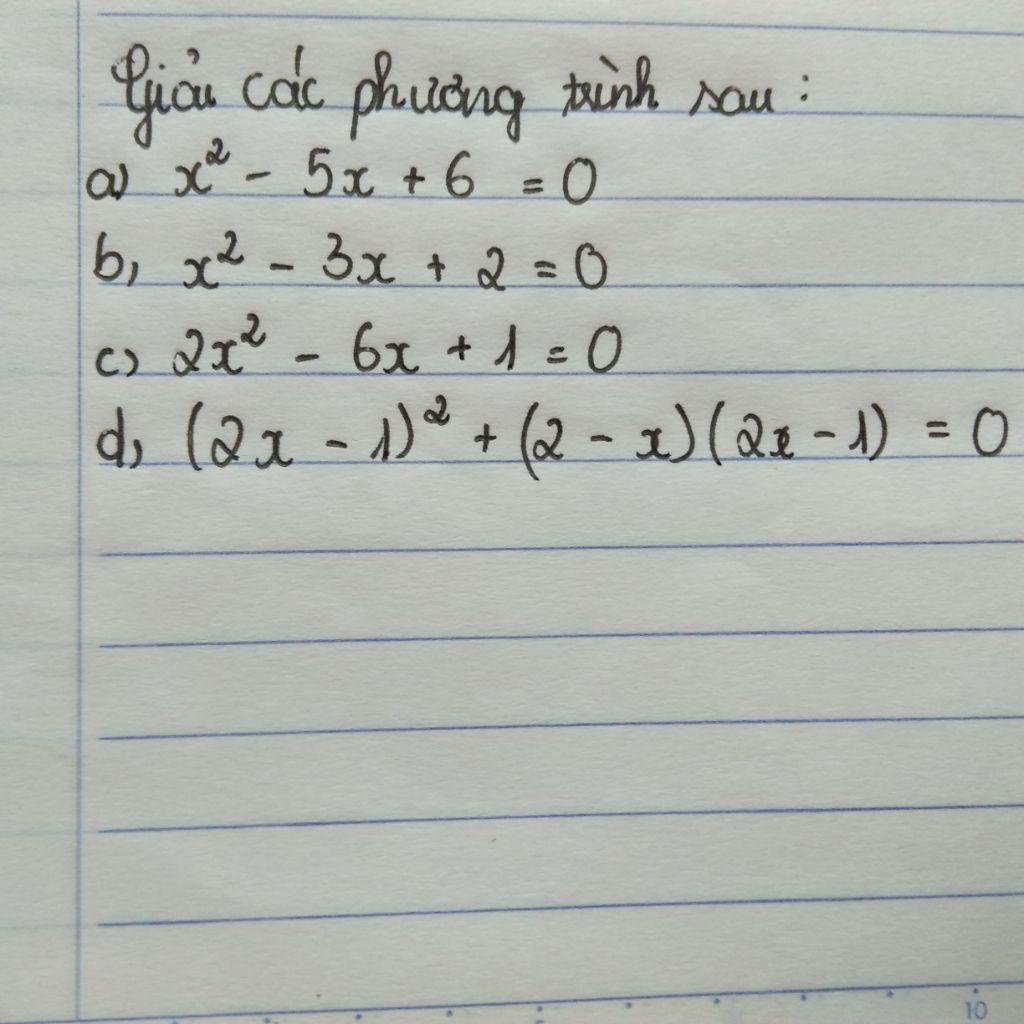 Giải các phương trình sau:
a) x² - 5x + 6 = 0
b, x² - 3x + 2 = 0
c) 2x² - 6x + 1 = 0
d, (2x - 1)² + (2 - x)(2x - 1) = 0
10